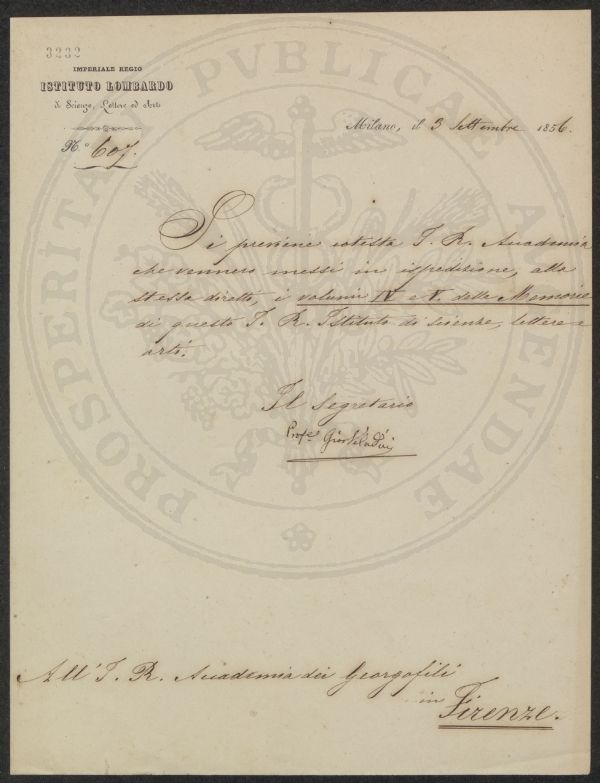 3232
IMPERIALE REGIO
ISTITUTO LOMBARDO
di Scienze, Lettere ed Arti
N.° 607.
Milano, il 3 Settembre 1856.
Si previene cotesta I. R. Accademia
che vennero messi in ispedizione, alla
stessa diretti, i volumi IV e V. delle Memorie
di questo I. R. Istituto di scienze, lettere e
arti.
Il Segretario
Prof.e
All' I. R. Accademia dei Georgofili
in
Firenze.
PROSPERITATI PVBLICAE AVGENDAE